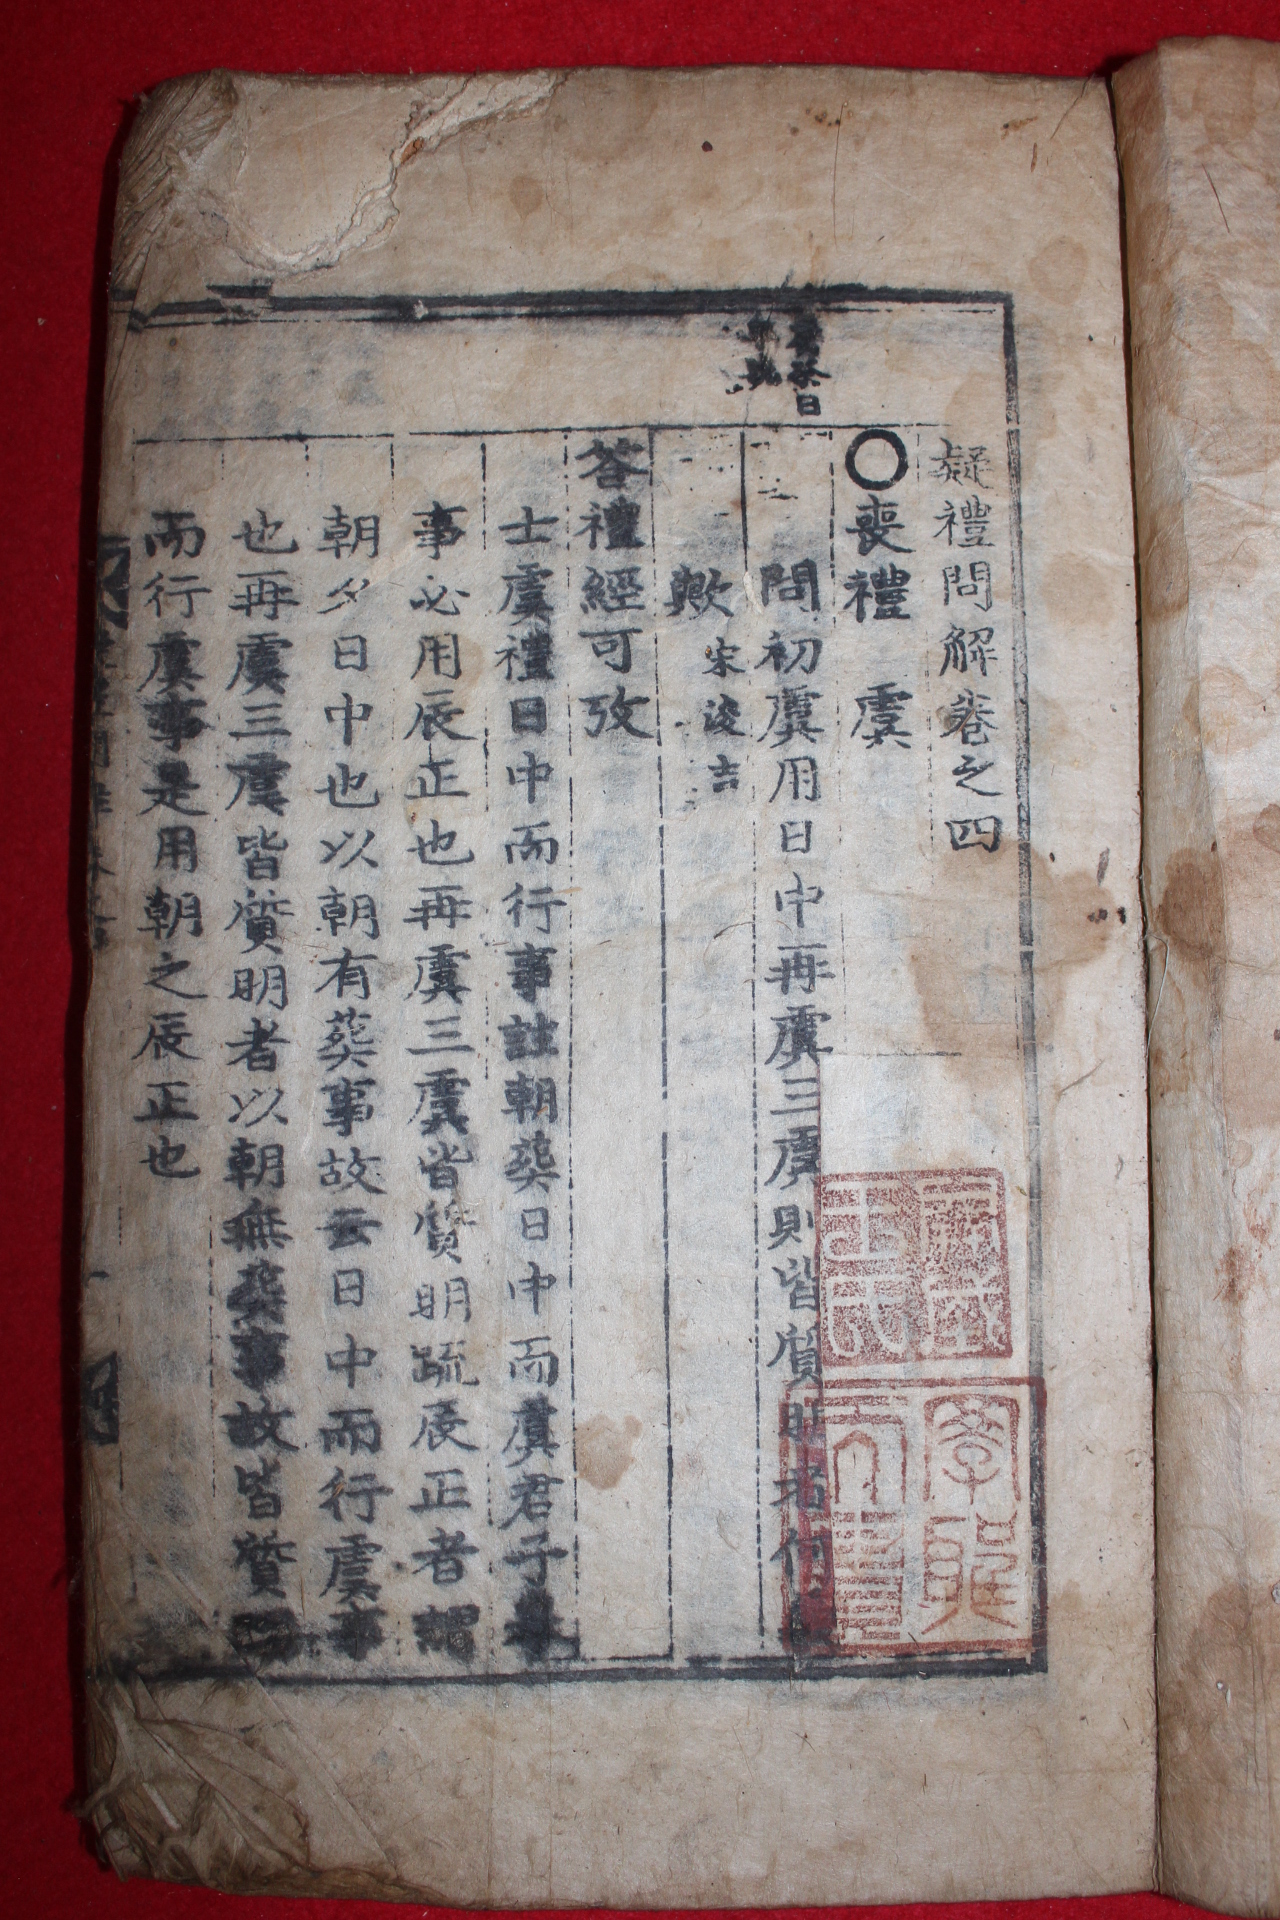 疑禮問解卷之四
○喪禮 虞
問初虞用日中再虞三虞則皆質明者何
歟 宋浚吉
答禮經可攷
士虞禮日中而行事註朝葬日中而虞君子
事必用辰正也再虞三虞皆質明疏辰正者謂
朝夕日中也以朝有葬事故云日中而行虞事
也再虞三虞皆質明者以朝無葬事故皆質明
而行虞事是用朝之辰正也